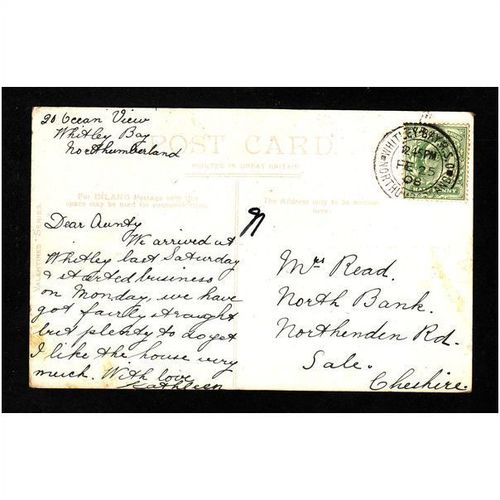 20 Ocean View
Whitley Bay
Northumberland
POST CARD
PRINTED IN GREAT BRITAIN
For INLAND Postage only this
space may be used for
The Address only to be written
here.
Dear Aunty
We arrived at
Whitley last Saturday
& started business
on Monday, we have
got fairly straight
but plenty to do yet
I like the house very
much. With love
Kathleen
Mrs Read.
North Bank.
Northenden Rd.
Sale.
Cheshire.
WHITLEY-BAY R.S.O.
NORTHUMBERLAND
12.45PM
FE 25
08
VALENTINES SERIES